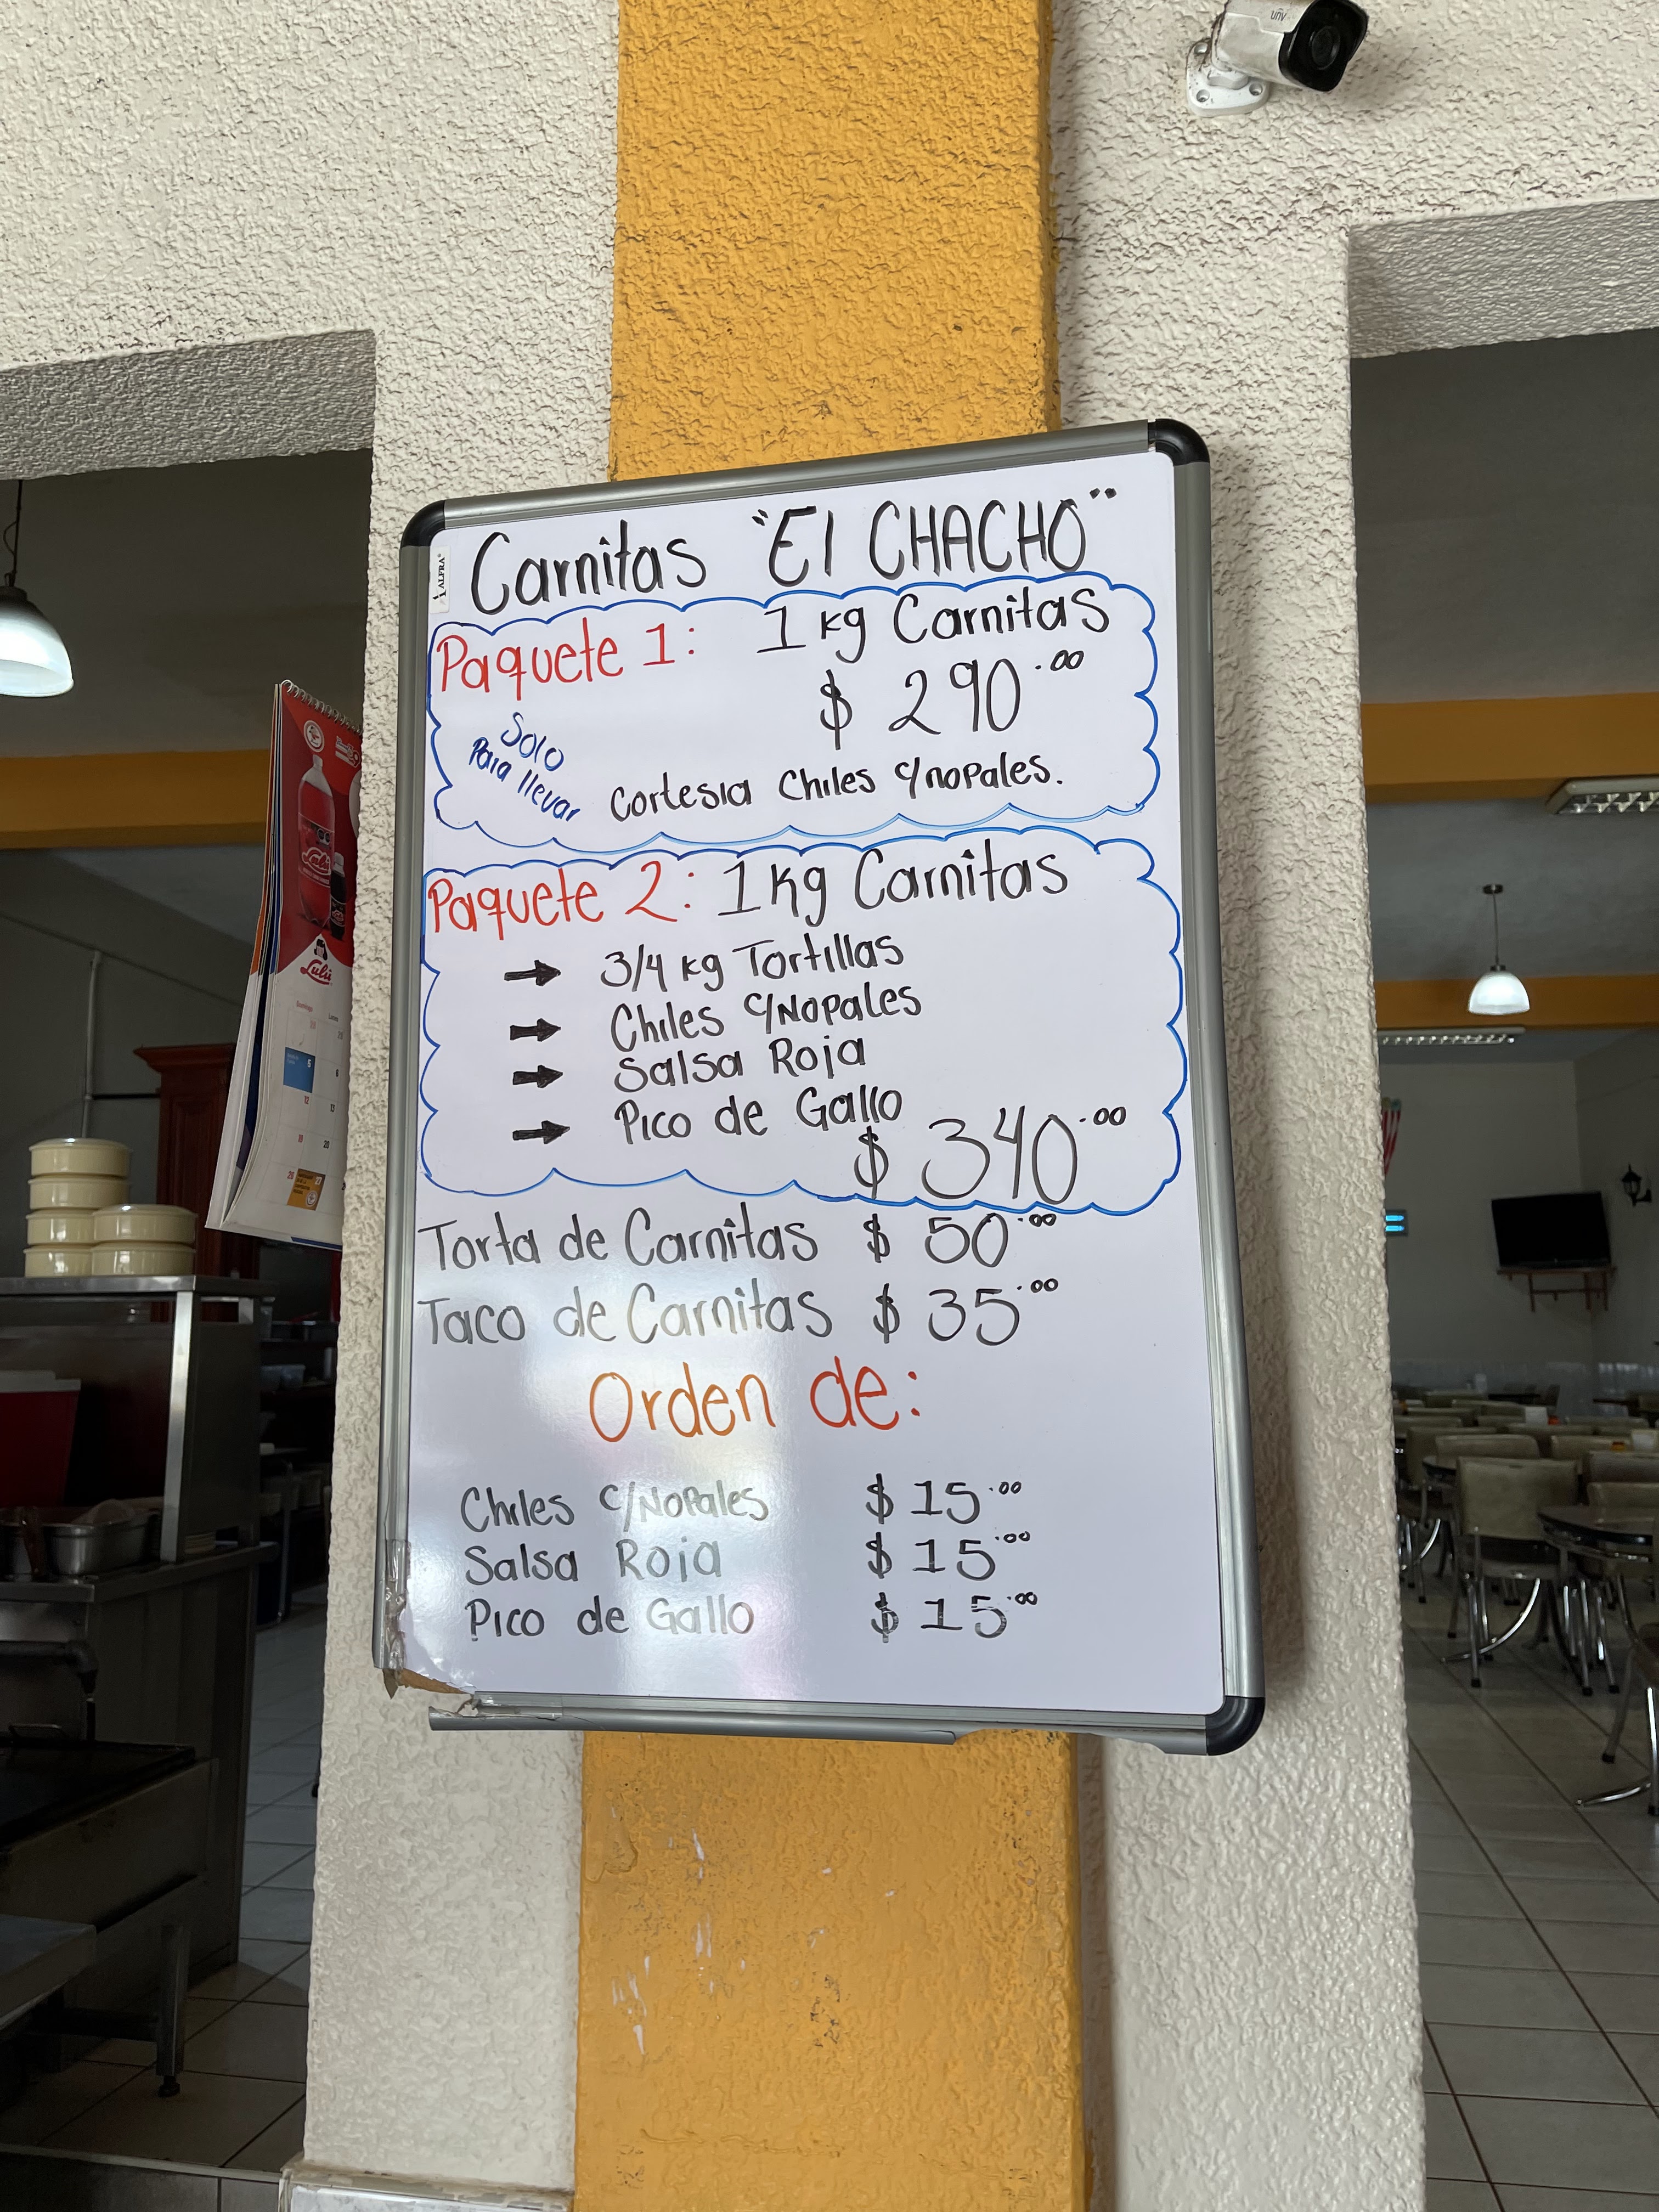 uñv
ALFRA
Carnitas "El CHACHO"
Paquete 1: 1 kg Carnitas
$ 290.00
Solo
Para llevar
Cortesia Chiles c/nopales.
Paquete 2: 1 kg Carnitas
3/4 kg Tortillas
Chiles c/Nopales
Salsa Roja
Pico de Gallo
$ 340.00
Torta de Carnitas $ 50.00
Taco de Carnitas $ 35.00
Orden de:
Chiles c/Nopales $ 15.00
Salsa Roja $ 15.00
Pico de Gallo $ 15.00
Lulú
Domingo Lunes
5
12 13
19 20
26 27